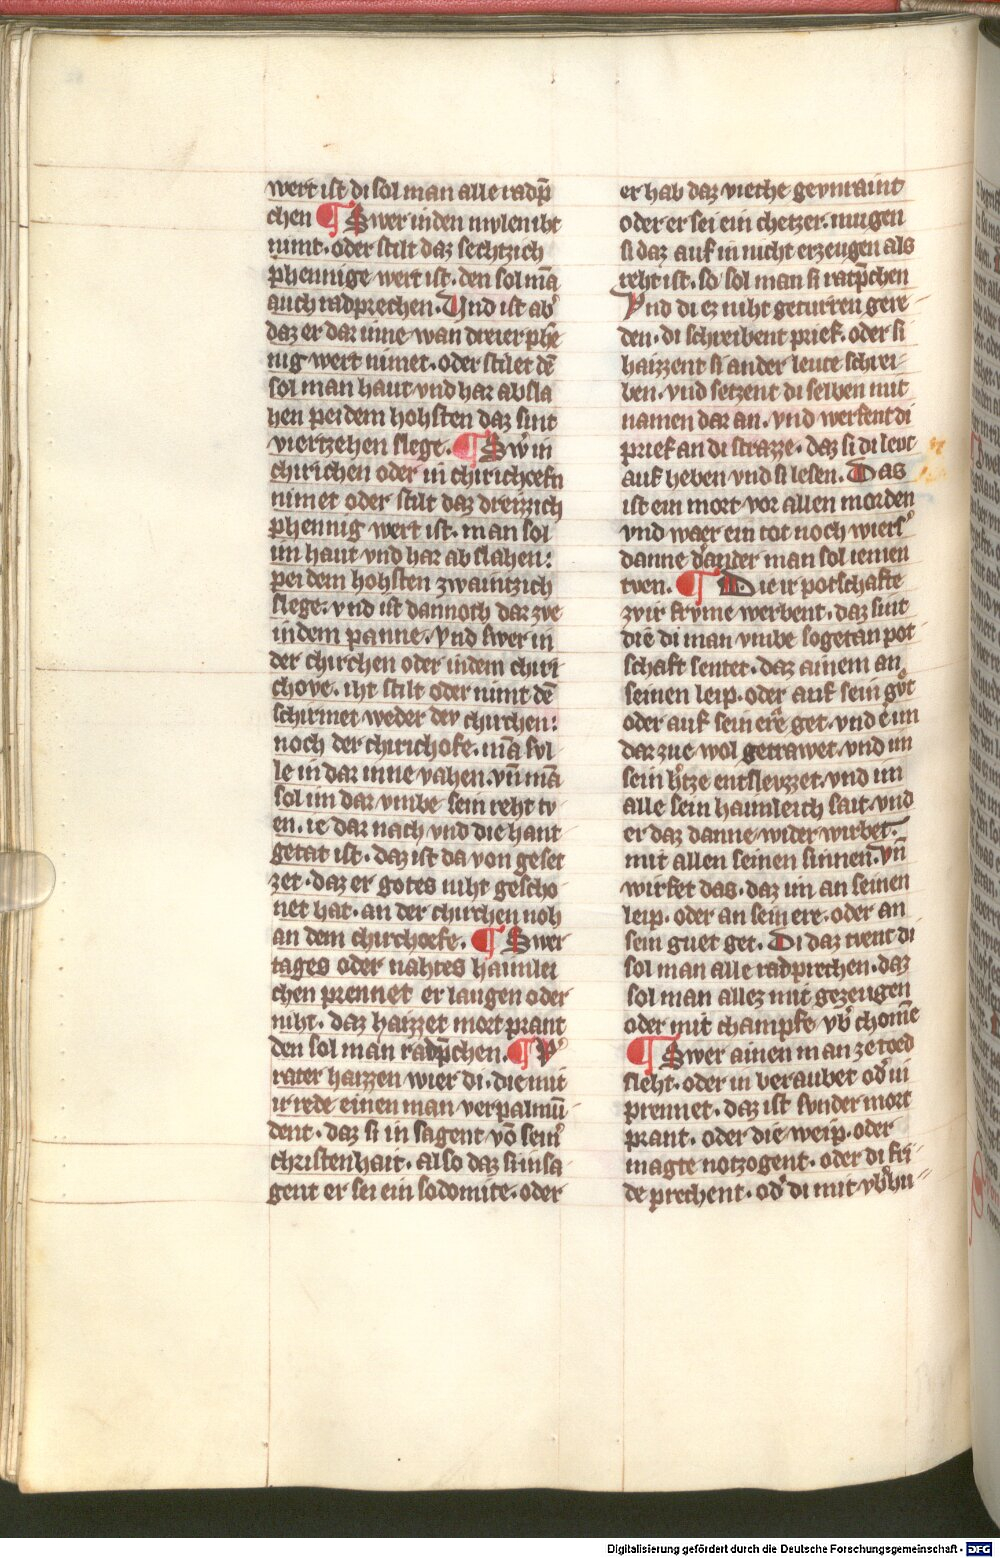 wert ist di sol man alle radp̄
chen ¶ Swer inden mvlen iht
nimt · oder stilt daz sechtzich
phennige wert ist · den sol mā
auch radprechen · Vnd ist ab᾽
daz er dar inne wan dreier phē
nig wert nimet · oder stilet dē
sol man haut vnd har absla
hen pei dem hohsten daz sint
viertzehen slege · ¶ Sw᾽ in
chirichen oder in chirichoefn
nimet oder stilt daz dreizzich
phennig wert ist · man sol
im haut vnd har ab slahen :
pei dem hohsten zwaintzich
slege : vnd ist dannoch dar zve
in dem panne · Vnd swer in
der chirchen oder in dem chiri
chove · iht stilt oder nimt dē
schirmet weder dev chirchen :
noch der chirichofe · mā svl
le in dar inne vahen · vn̄ mā
sol im dar vmbe sein reht tv
en · ie dar nach vnd die hant
getat ist · daz ist da von geset
zet · daz er gotes niht gescho
net hat · an der chirchen noh
an dem chirchoefe · ¶ Swer
tages oder nahtes haimlei
chen prennet er laugen oder
niht · daz haizzet mort prant
den sol man radp̄chen · ¶ V᾽
rater haizzen wier di · die mit
ir rede einen man verpalmū
dent · daz si in sagent vō sein᾽
christenhait · also daz si in sa
gent er sei ein sodomite · oder
er hab daz vieche gevnraint
oder er sei ein chetzer · mugen
si daz auf in nicht erzeugen als
reht ist · so sol man si ratp̄chen
Vnd di ez niht geturren gere
den · di schreibent prief · oder si
haizzent si ander leute schrei
ben · vnd setzent di selben mit
namen dar an · vnd werfent di
prief an di strazze · daz si di levt
auf heben vnd si lesen · Das
ist ein mort vor allen morden
vnd waer ein tot noch wiers᾽
danne d᾽ ander man sol iemen
tven · ¶ Die ir potschafte
zvir frvme werbent · daz sint
die di man vmbe sogetan pot
schaft sentet · daz ainem an
seinen leip · oder auf sein gůt
oder auf sein ere get · vnd er im
dar zve wol getrawet · vnd im
sein h᾽tze entslevzzet · vnd im
alle sein haimleich sait · vnd
er daz danne wider wirbet ·
mit allen seinen sinnen · vn̄
wirfet das · daz im an seinen
leip · oder an sein ere · oder an
sein guet get · Di daz tvent di
sol man alle radprechen · daz
sol man allez mit gezeugen
oder mit champfe vb᾽ chomē
¶ Swer ainen man ze toed
sleht · oder in beraubet od᾽ in
prennet · daz ist svnder mort
prant · oder die weip · oder
magte notzogent · oder di fri
de prechent · od᾽ di mit vb᾽hu
Digitalisierung gefördert durch die Deutsche Forschungsgemeinschaft - DFG